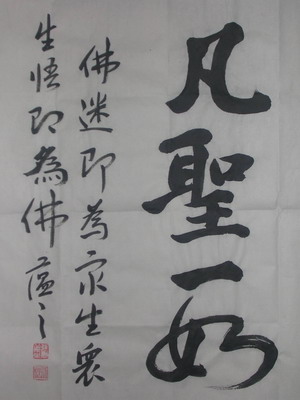 凡聖一如
佛迷即為众生眾
生悟即為佛